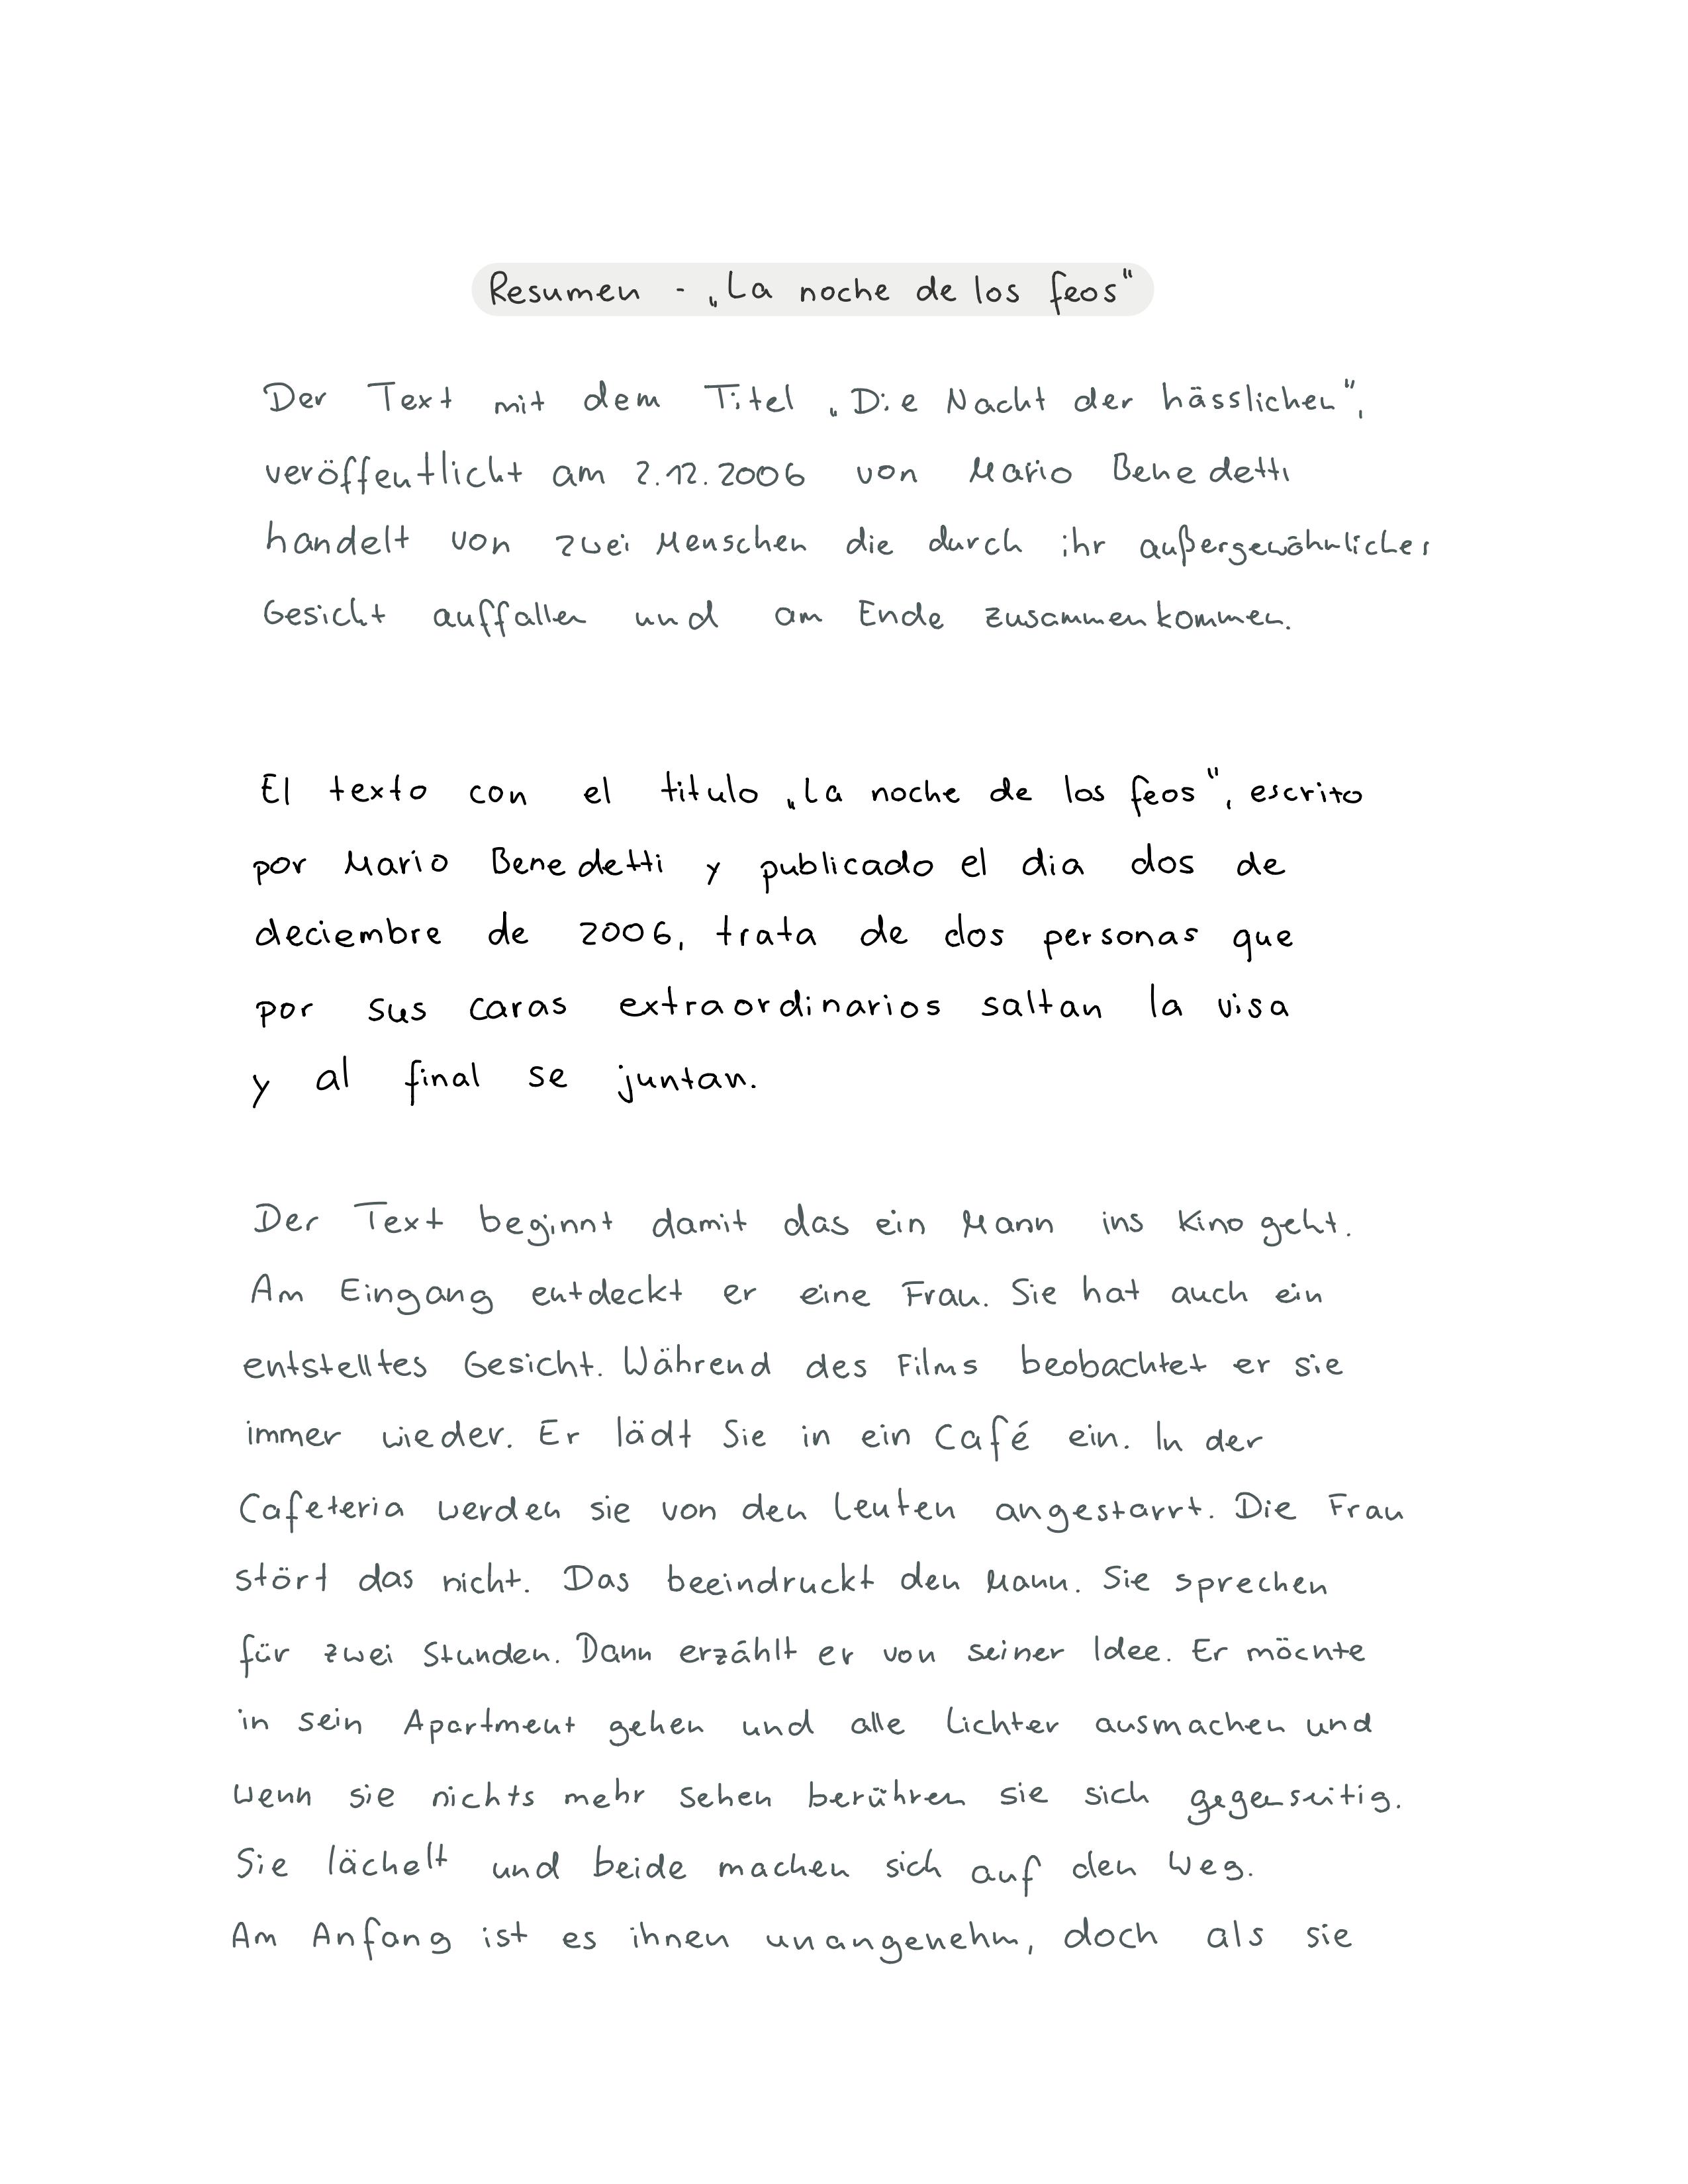 Resumen - „La noche de los feos"
Der Text mit dem Titel „Die Nacht der hässlichen",
veröffentlicht am 2.12.2006 von Mario Benedetti
handelt von zwei Menschen die durch ihr außergewöhnliches
Gesicht auffallen und am Ende zusammenkommen.
El texto con el titulo „La noche de los feos", escrito
por Mario Benedetti y publicado el dia dos de
deciembre de 2006, trata de dos personas que
por sus caras extraordinarios saltan la visa
y al final se juntan.
Der Text beginnt damit das ein Mann ins Kino geht.
Am Eingang entdeckt er eine Frau. Sie hat auch ein
entstelltes Gesicht. Während des Films beobachtet er sie
immer wieder. Er lädt Sie in ein Café ein. In der
Cafeteria werden sie von den Leuten angestarrt. Die Frau
stört das nicht. Das beeindruckt den Mann. Sie sprechen
für zwei Stunden. Dann erzählt er von seiner Idee. Er möchte
in sein Apartment gehen und alle Lichter ausmachen und
wenn sie nichts mehr sehen berühren sie sich gegenseitig.
Sie lächelt und beide machen sich auf den Weg.
Am Anfang ist es ihnen unangenehm, doch als sie